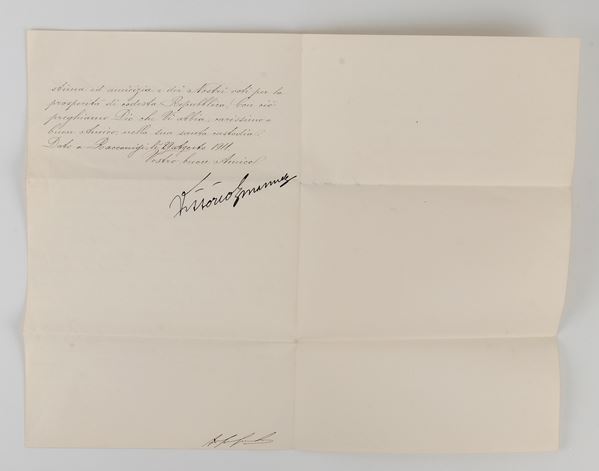 stima ed amicizia e dei Nostri voti per la
prosperità di codesta Repubblica, con ciò
preghiamo Dio che Vi abbia, carissimo e
buon Amico, nella sua santa custodia.
Dato a Racconigi, li 29 Agosto 1911
Vostro buon Amico
Vittorio Emanuele